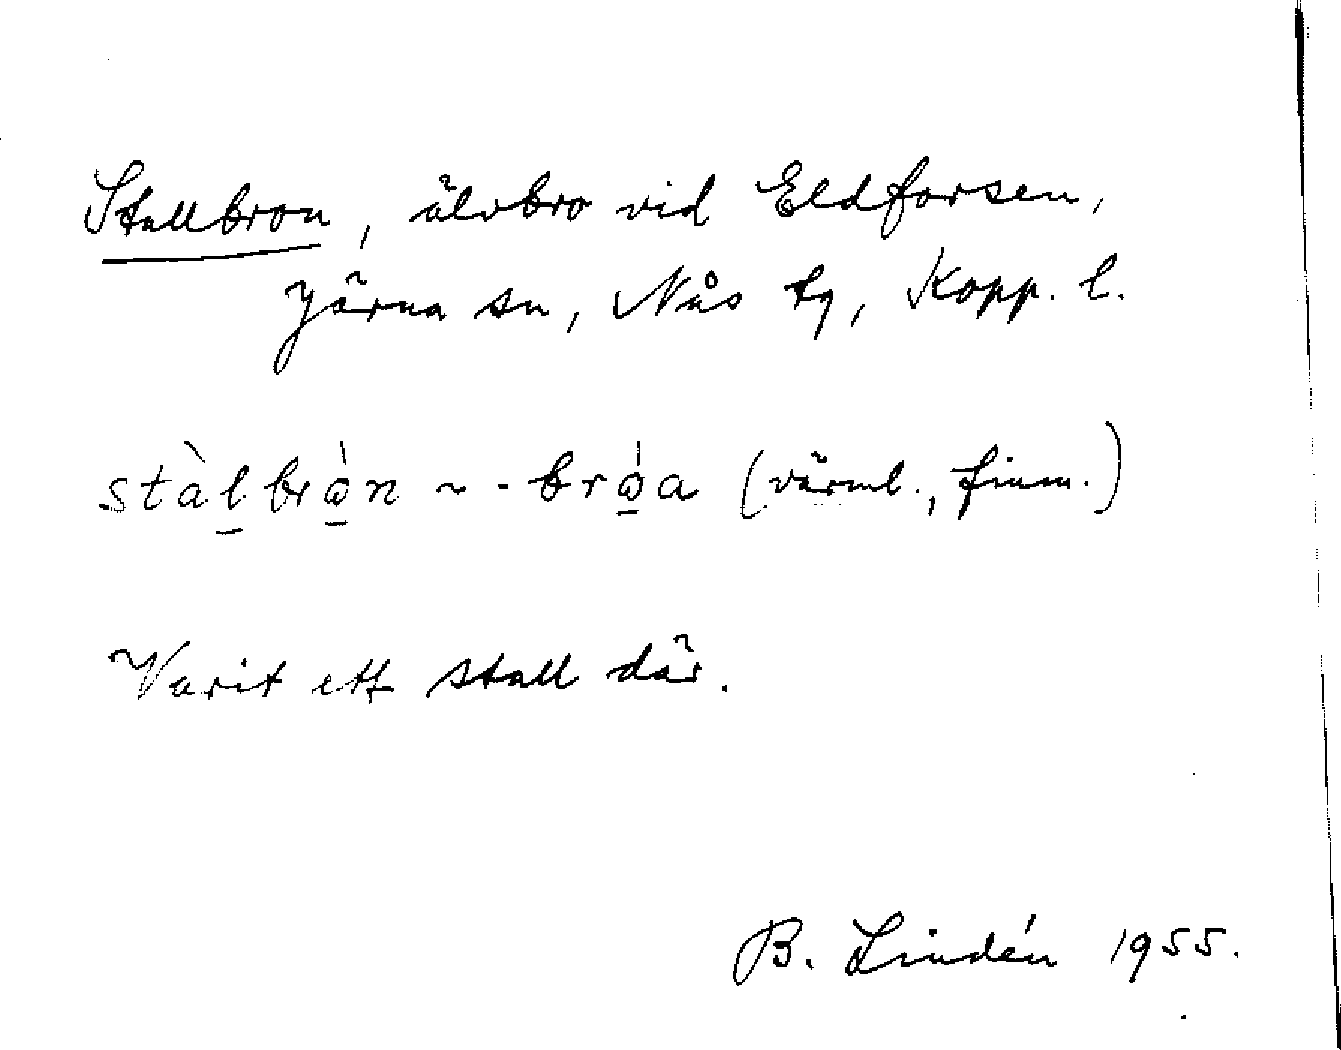 Stallbron, älvbro vid Eldforsen,
Järna sn, Nås tg, Kopp. l.
stàl̠brò̠n ~ -brò̠a (värml., finnm.)
Varit ett stall där.
B. Lindén 1955.